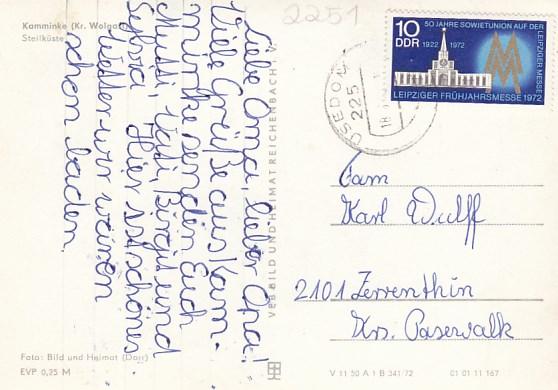 Kamminke (Kr. Wolgast)
Steilküste
2251
Liebe Oma, lieber Opa!
Viele Grüße aus Kam-
minke senden Euch
Mutti, Vati, Birgit und
Sylvia. Hier ist schönes
Wetter wir waren
schon baden.
VEB BILD UND HEIMAT REICHENBACH I. V.
10
DDR
50 JAHRE SOWJETUNION AUF DER LEIPZIGER MESSE
1922 1972
LEIPZIGER FRÜHJAHRSMESSE 1972
USEDOM
225
18
Fam
Karl Wulff
2101 Zerrenthin
Krs. Pasewalk
Foto: Bild und Heimat (Dorr)
EVP 0,25 M
V 11 50 A 1 B 341/72
01 01 11 167